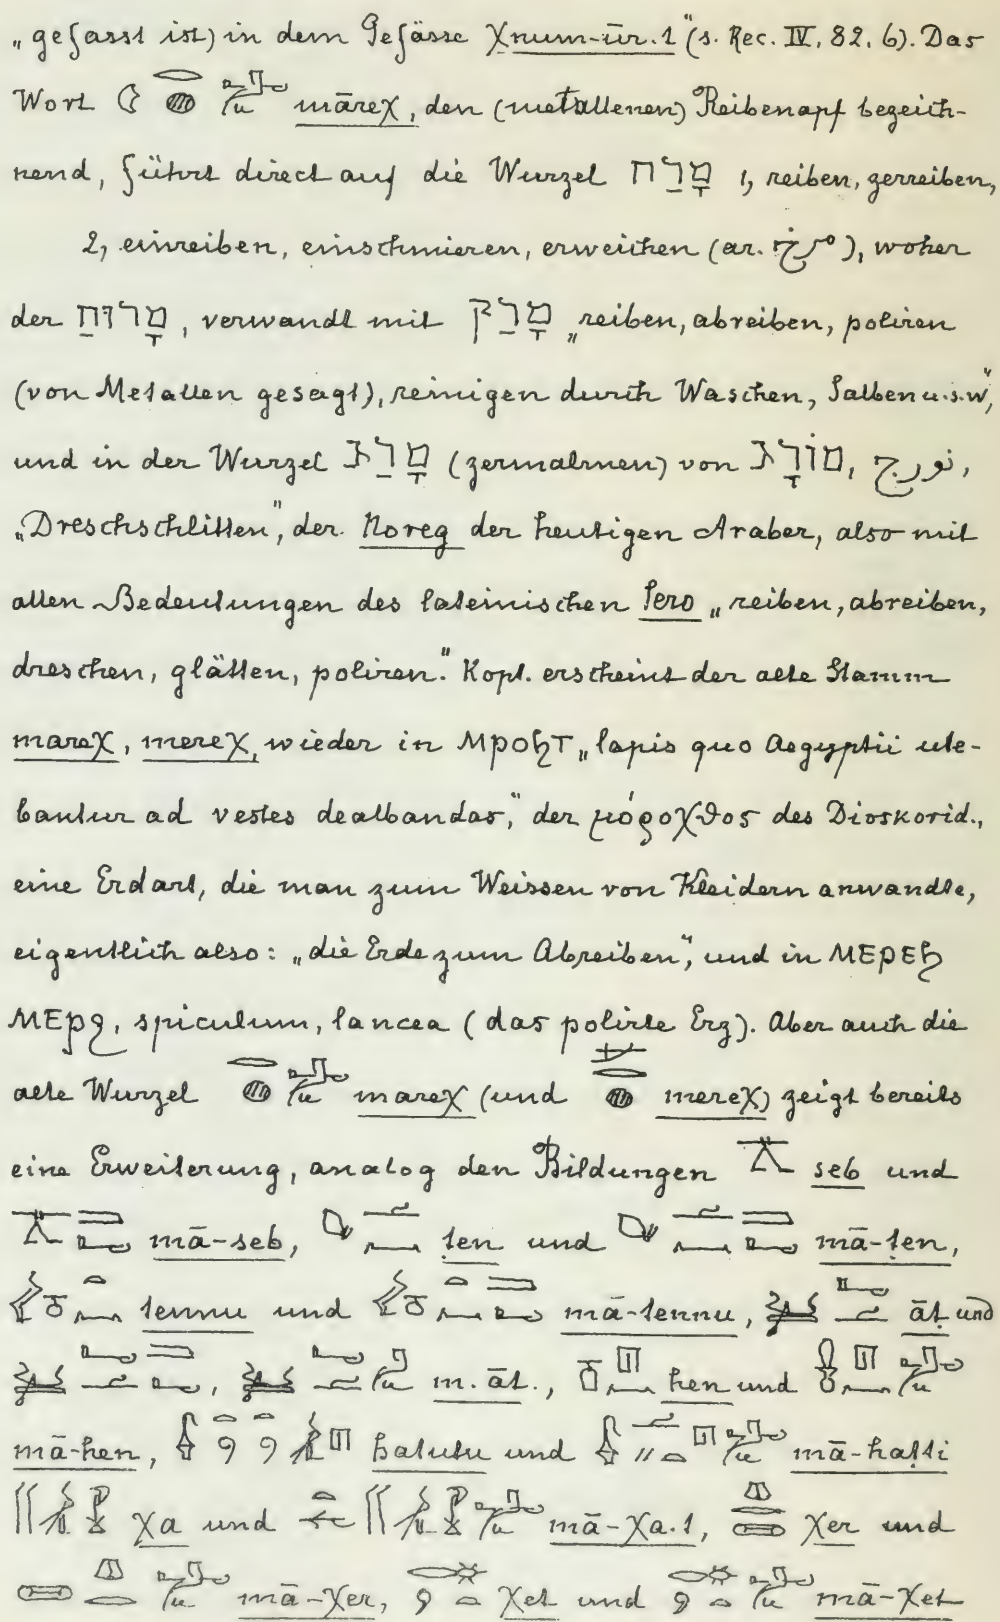 „gefasst ist) in dem Gefässe χnum-ūr.t" (s. Rec. IV, 82, 6). Das
Wort māreχ, den (metallenen) Reibenapf bezeich-
nend, führt direct auf die Wurzel מָרַח 1, reiben, zerreiben,
2, einreiben, einschmieren, erweichen (ar. مرخ), woher
der מָרוֹחַ, verwandt mit מָרַק „reiben, abreiben, poliren
(von Metallen gesagt), reinigen durch Waschen, Salben u.s.w."
und in der Wurzel מָרַג (zermalmen) von מוֹרָג, نورج,
„Dreschschlitten", der Noreg der heutigen Araber, also mit
allen Bedeutungen des lateinischen tero „reiben, abreiben,
dreschen, glätten, poliren." Kopt. erscheint der alte Stamm
mareχ, mereχ, wieder in ⲙⲣⲟϧⲧ „lapis quo Aegyptii ute-
bantur ad vestes dealbandas," der μόροχθος des Dioskorid.,
eine Erdart, die man zum Weissen von Kleidern anwandte,
eigentlich also: „die Erde zum Abreiben", und in ⲙⲉⲣⲉϧ
ⲙⲉⲣϩ, spiculum, lancea (das polirte Erz). Aber auch die
alte Wurzel mareχ (und mereχ) zeigt bereits
eine Erweiterung, analog den Bildungen seb und
mā-seb, ṭen und mā-ṭen,
tennu und mā-tennu, āṭ und
m.āt., hen und
mā-hen, hatutu und mā-haṭti
χa und mā-χa.t, χer und
mā-χer, χet und mā-χet